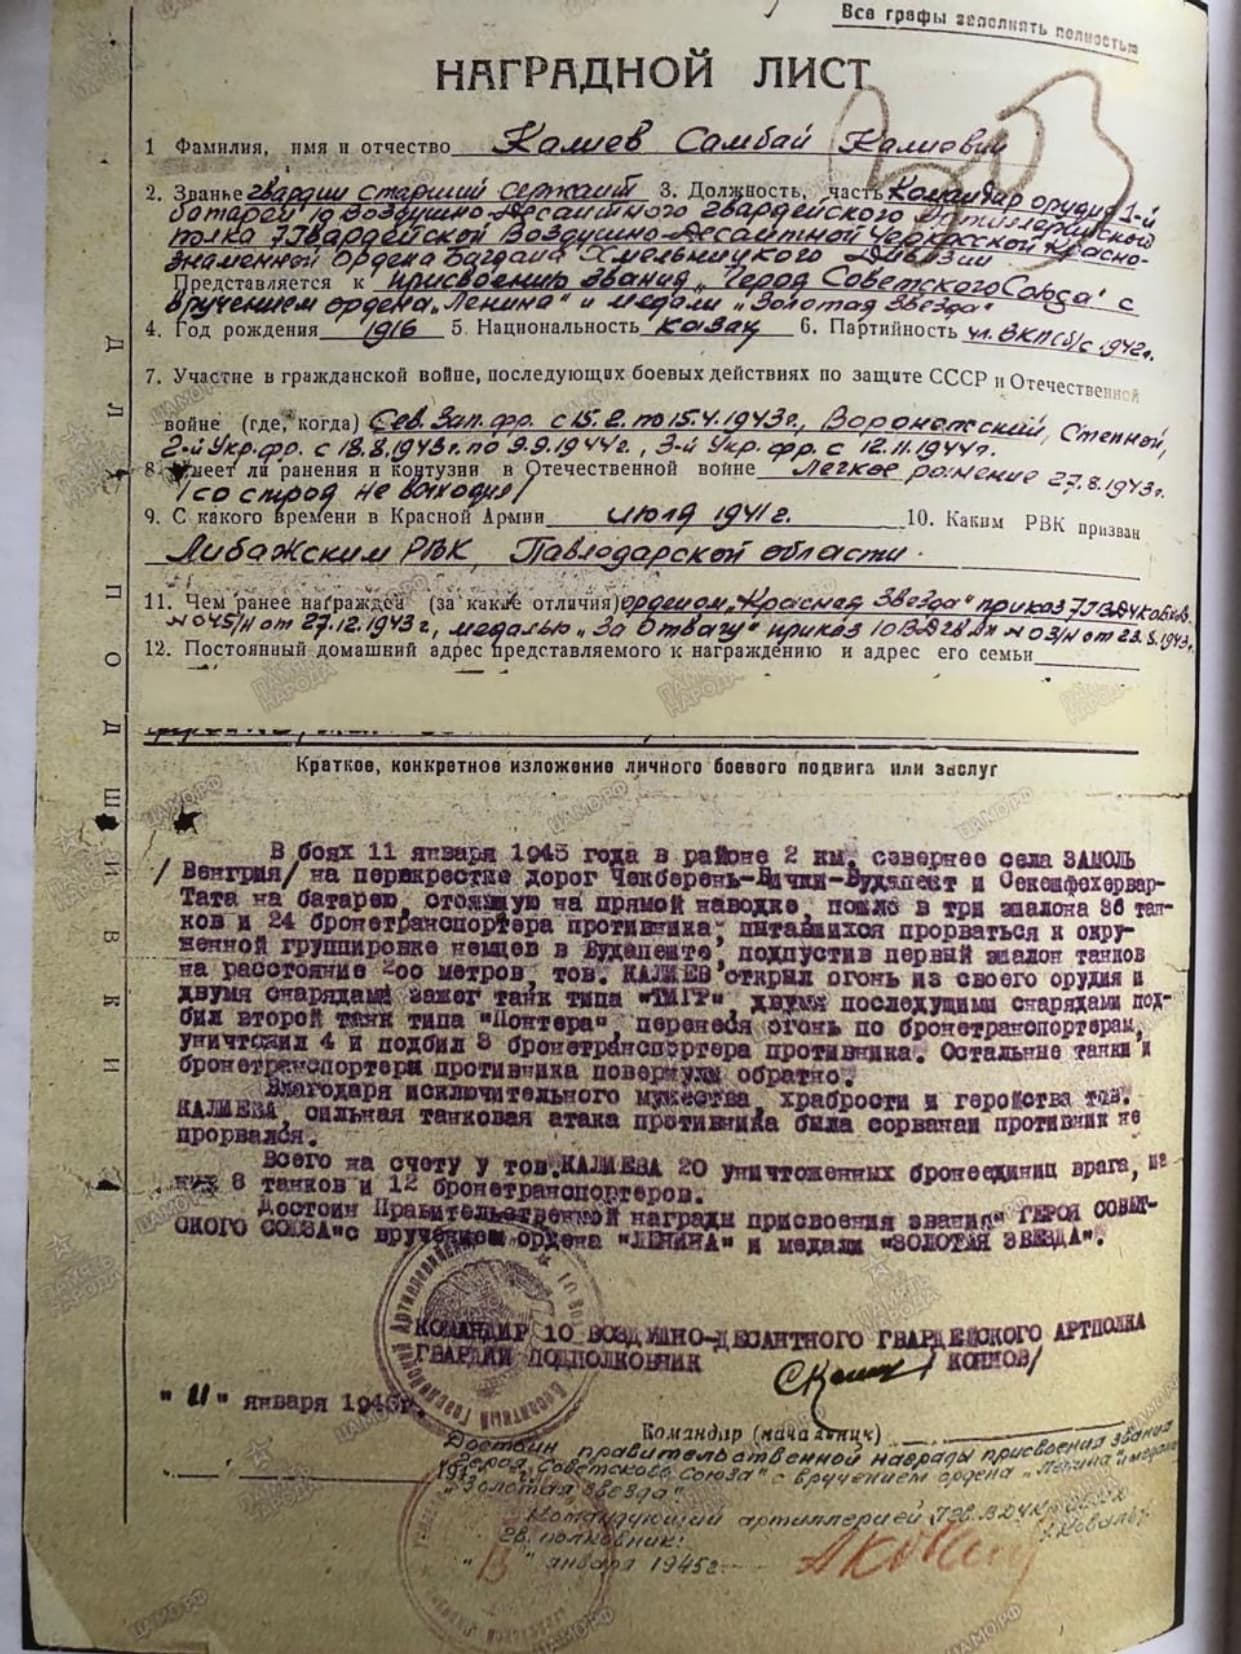 Все графы заполнять полностью
НАГРАДНОЙ ЛИСТ
1 Фамилия, имя и отчество Калиев Самбай Калиевич
2. Званье гвардии старший сержант 3. Должность, часть Командир орудия 1-й
батареи 10 Воздушно-Десантного гвардейского Артиллерийской
полка 7 Гвардейской Воздушно-Десантной Черкасской Красно-
знаменной ордена Богдана Хмельницкого Дивизии
Представляется к присвоению звания „Герой Советского Союза" с
вручением ордена „Ленина" и медали „Золотая Звезда"
4. Год рождения 1916 5. Национальность казах 6. Партийность чл. ВКП(б) с 1942г.
7. Участие в гражданской войне, последующих боевых действиях по защите СССР и Отечественной
войне (где, когда) Сев. Зап. фр. с 15.2. по 15.4.1943г., Воронежский, Степной,
2-й Укр. фр. с 18.8.1943г. по 9.9.1944г., 3-й Укр. фр. с 12.11.1944г.
8. Имеет ли ранения и контузии в Отечественной войне Легкое ранение 27.8.1943г.
/со строя не выходил/
9. С какого времени в Красной Армии июля 1941г. 10. Каким РВК призван
Либажским РВК, Павлодарской области.
11. Чем ранее награжден (за какие отличия) орденом „Красная Звезда" приказ 7ГВДЧК
N 045/н от 27.12.1943г, медалью „За Отвагу" приказ 10 N 03/н от 23.8.1943г.
12. Постоянный домашний адрес представляемого к награждению и адрес его семьи
Краткое, конкретное изложение личного боевого подвига или заслуг
В боях 11 января 1945 года в районе 2 км. севернее села ЗАМОЛЬ
/Венгрия/ на перекрестке дорог Чекберень-Бички-Будапешт и Секешфехервар-
Тата на батарею, стоящую на прямой наводке, пошло в три эшалона 36 тан-
ков и 24 бронетранспортера противника, пытавшихся прорваться к окру-
женной группировке немцев в Будапеште, подпустив первый эшалон танков
на расстояние 200 метров, тов. КАЛИЕВ открыл огонь из своего орудия и
двумя снарядами зажег танк типа "ТИГР", двумя последущими снарядами под-
бил второй танк типа "Понтера", перенеся огонь по бронетранспортерам,
уничтожил 4 и подбил 3 бронетранспортера противника. Остальные танки и
бронетранспортеры противника повернули обратно.
Благодаря исключительного мужества, храбрости и геройства тов.
КАЛИЕВА, сильная танковая атака противника была сорвана и противник не
прорвался.
Всего на счету у тов.КАЛИЕВА 20 уничтоженных бронеединиц врага, из
них 8 танков и 12 бронетранспортеров.
Достоин Правительственной награды присвоения звания" ГЕРОЯ СОВЕТ-
СКОГО СОЮЗА"с вручением ордена "ЛЕНИНА" и медали "ЗОЛОТАЯ ЗВЕЗДА".
КОМАНДИР 10 ВОЗДУШНО-ДЕСАНТНОГО ГВАРДЕЙСКОГО АРТПОЛКА
ГВАРДИИ ПОДПОЛКОВНИК /КОНМОВ/
"11" января 1945г.
Командир (начальник)
Достоин правительственной награды присвоения звания
"Герой Советского Союза" с вручением ордена „Ленина" и медали
"Золотая Звезда".
Командующий артиллерией 7 Гв. ВДЧК
Гв. полковник: /Коваль/
"13" января 1945г.
ДЛЯ ПОДШИВКИ